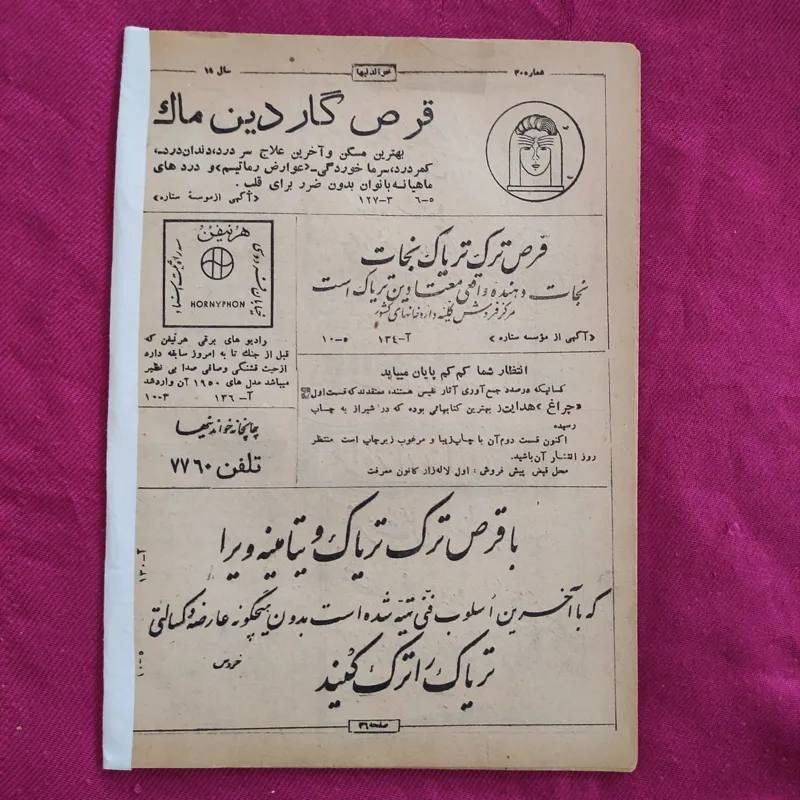 شماره ۳۰
خواندنیها
سال ۱۸
قرص گاردین ماك
بهترین مسکن و آخرین علاج سر درد، دندان درد،
کمر درد، سرما خوردگی ـ «عوارض رماتیسم» و درد های
ماهیانه بانوان بدون ضرر برای قلب .
۵-۶ ۳-۱۲۷ «آگهی از موسسه ستاره»
قرص ترک تریاک نجات
نجات دهنده واقعی معتادین تریاک است
مرکز فروش کلیه داروخانه‌های کشور
«آگهی از مؤسسه ستاره» آ-۱۳۴ ۵-۱۰
هرنیفن
سه راه امین حضور
خیابان فردوسی
HORNYPHON
رادیو های برقی هرنیفن که
قبل از جنك تا به امروز سابقه دارد
از حیث قشنگی و صافی صدا بی نظیر
میباشد مدل های ۱۹۵۰ آن وارد شد
آ- ۱۳۶ ۳-۱۰
انتظار شما کم کم پایان میباید
کسانیکه درصدد جمع آوری آثار نفیس هستند، معتقدند که قسمت اول
«چراغ هدایت» ز بهترین کتابهائی بوده که در شیراز به چاپ
رسیده
اکنون قسمت دوم آن با چاپ زیبا و مرغوب زیر چاپ است منتظر
روز انتشار آن باشید.
محل قبض پیش فروش : اول لاله زار کانون معرفت
چاپخانه خواندنیها
تلفن ۷۷۶۰
با قرص ترک تریاک ویتامینه ویرا
که با آخرین اسلوب فنی تهیه شده است بدون هیچگونه عارضه و کسالتی
تریاک را ترک کنید
خروس
آ-۱۳۰
۵-۱۰
صفحه ۳۶